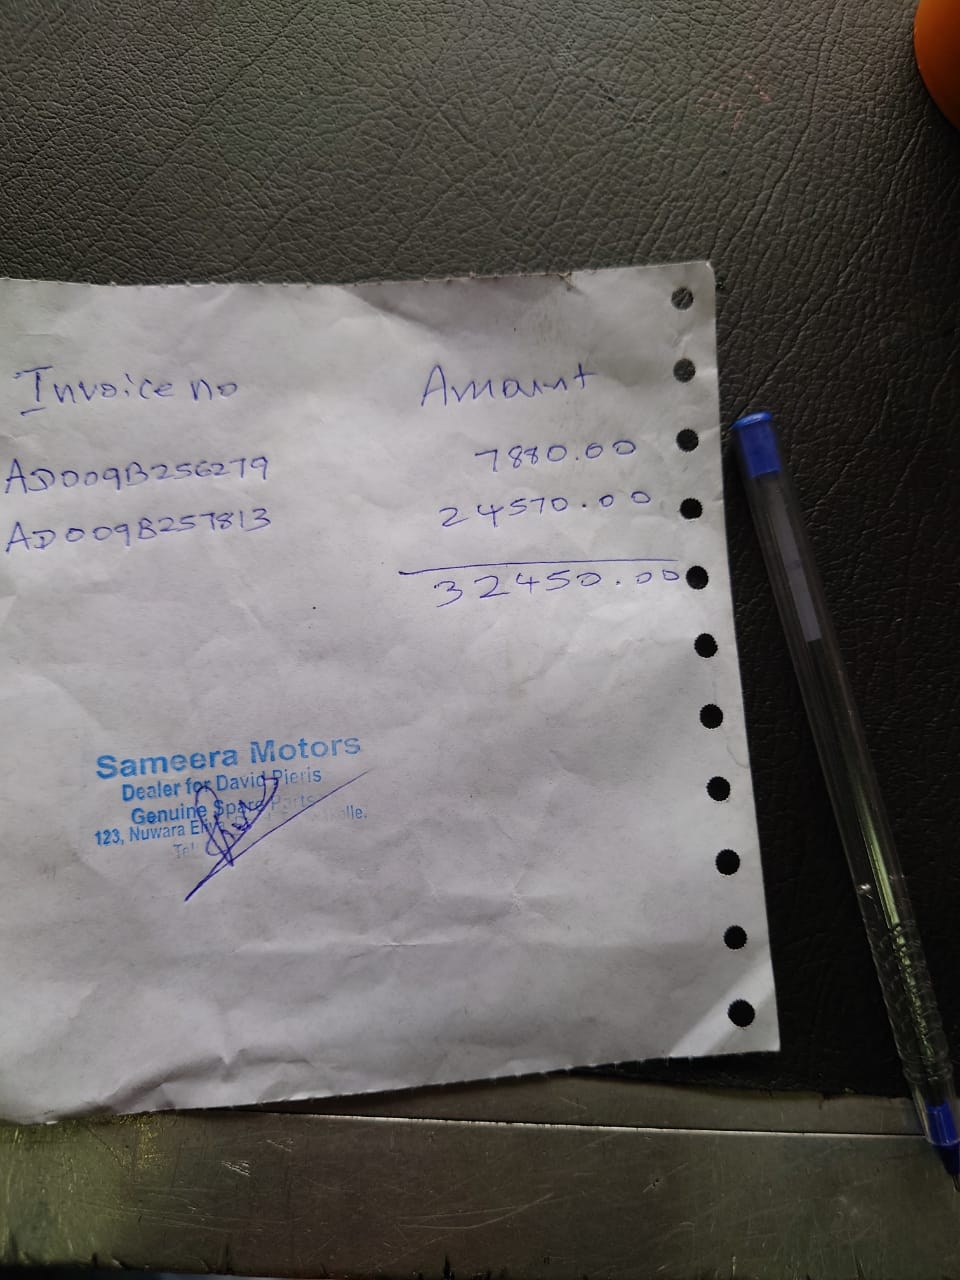 Invoice no Amount
AD009B256279 7880.00
AD009B257813 24570.00
32450.00
Sameera Motors
Dealer for David Pieris
Genuine Spare Parts
123, Nuwara
Tel